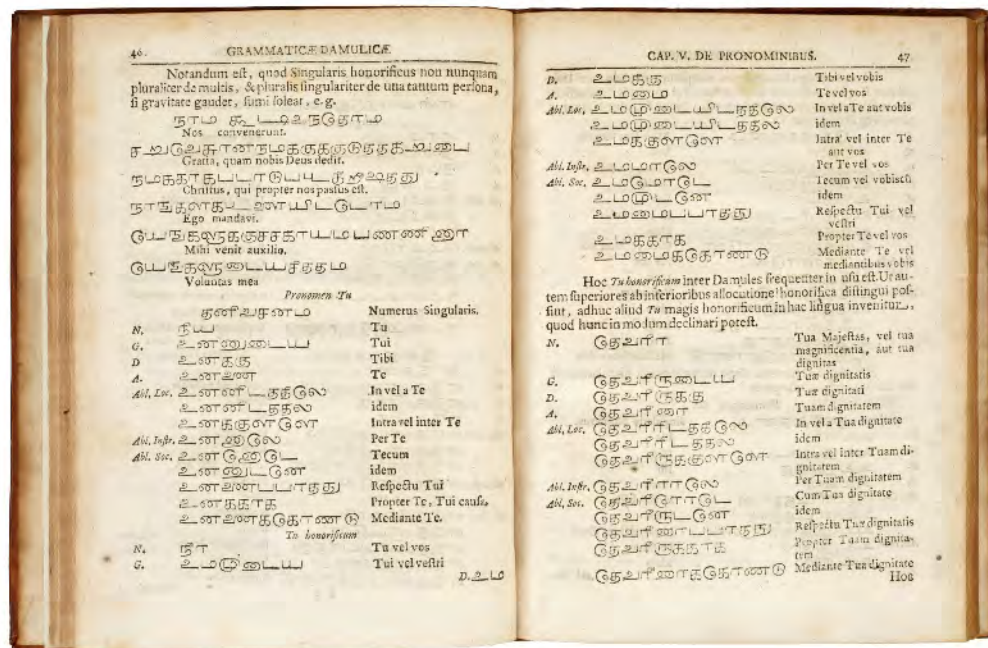 46. GRAMMATICÆ DAMULICÆ
Notandum est, quod Singularis honorificus non nunquam
pluraliter de multis, & pluralis singulariter de una tantum persona,
si gravitate gaudet, sumi soleat, e. g.
Nos convenerunt.
Gratia, quam nobis Deus dedit.
Christus, qui propter nos passus est.
Ego mandavi.
Mihi venit auxilio.
Voluntas mea
Pronomen Tu
Numerus Singularis.
N. நீய Tu
G. உனனுடைய Tui
D உனககு Tibi
A. உனனை Te
Abl. Loc. உனனிடததிலே In vel a Te
உனனிடததில idem
உனககுளளே Intra vel inter Te
Abl. Instr. உனனாலே Per Te
Abl. Soc. உனனோடே Tecum
உனனுடனே idem
Respectu Tui
உனககாக Propter Te, Tui causa.
Mediante Te.
Tu honorificum
N. நீர Tu vel vos
G. உமமுடைய Tui vel vestri
D. உம
CAP. V. DE PRONOMINIBUS. 47
D. உமககு Tibi vel vobis
A. உமமை Te vel vos
Abl. Loc. உமமுடையிடததிலே In vel a Te aut vobis
உமமுடையிடததில idem
உமககுளளே Intra vel inter Te
aut vos
Abl. Instr. உமமாலே Per Te vel vos
Abl. Soc. உமமோடே Tecum vel vobiscũ
உமமுடனே idem
Respectu Tui vel
vestri
உமககாக Propter Te vel vos
உமமைககொணடு Mediante Te vel
mediantibus vobis
Hoc Tu honorificum inter Damules frequenter in usu est. Ut au-
tem superiores ab inferioribus allocutione honorifica distingui pos-
sint, adhuc aliud Tu magis honorificum in hac lingua invenitur,
quod hunc in modum declinari potest.
N. தேவரீர Tua Majestas, vel tua
magnificentia, aut tua
dignitas
G. தேவரீருடைய Tuæ dignitatis
D. தேவரீருககு Tuæ dignitati
A. தேவரீரை Tuam dignitatem
Abl. Loc. In vel a Tua dignitate
idem
தேவரீருககுளளே Intra vel inter Tuam di-
gnitatem
Abl. Instr. தேவரீராலே Per Tuam dignitatem
Abl. Soc. தேவரீரோடே Cum Tua dignitate
தேவரீருடனே idem
Respectu Tuæ dignitatis
தேவரீருககாக Propter Tuam dignita-
tem
தேவரீரைககொணடு Mediante Tua dignitate
Hoc